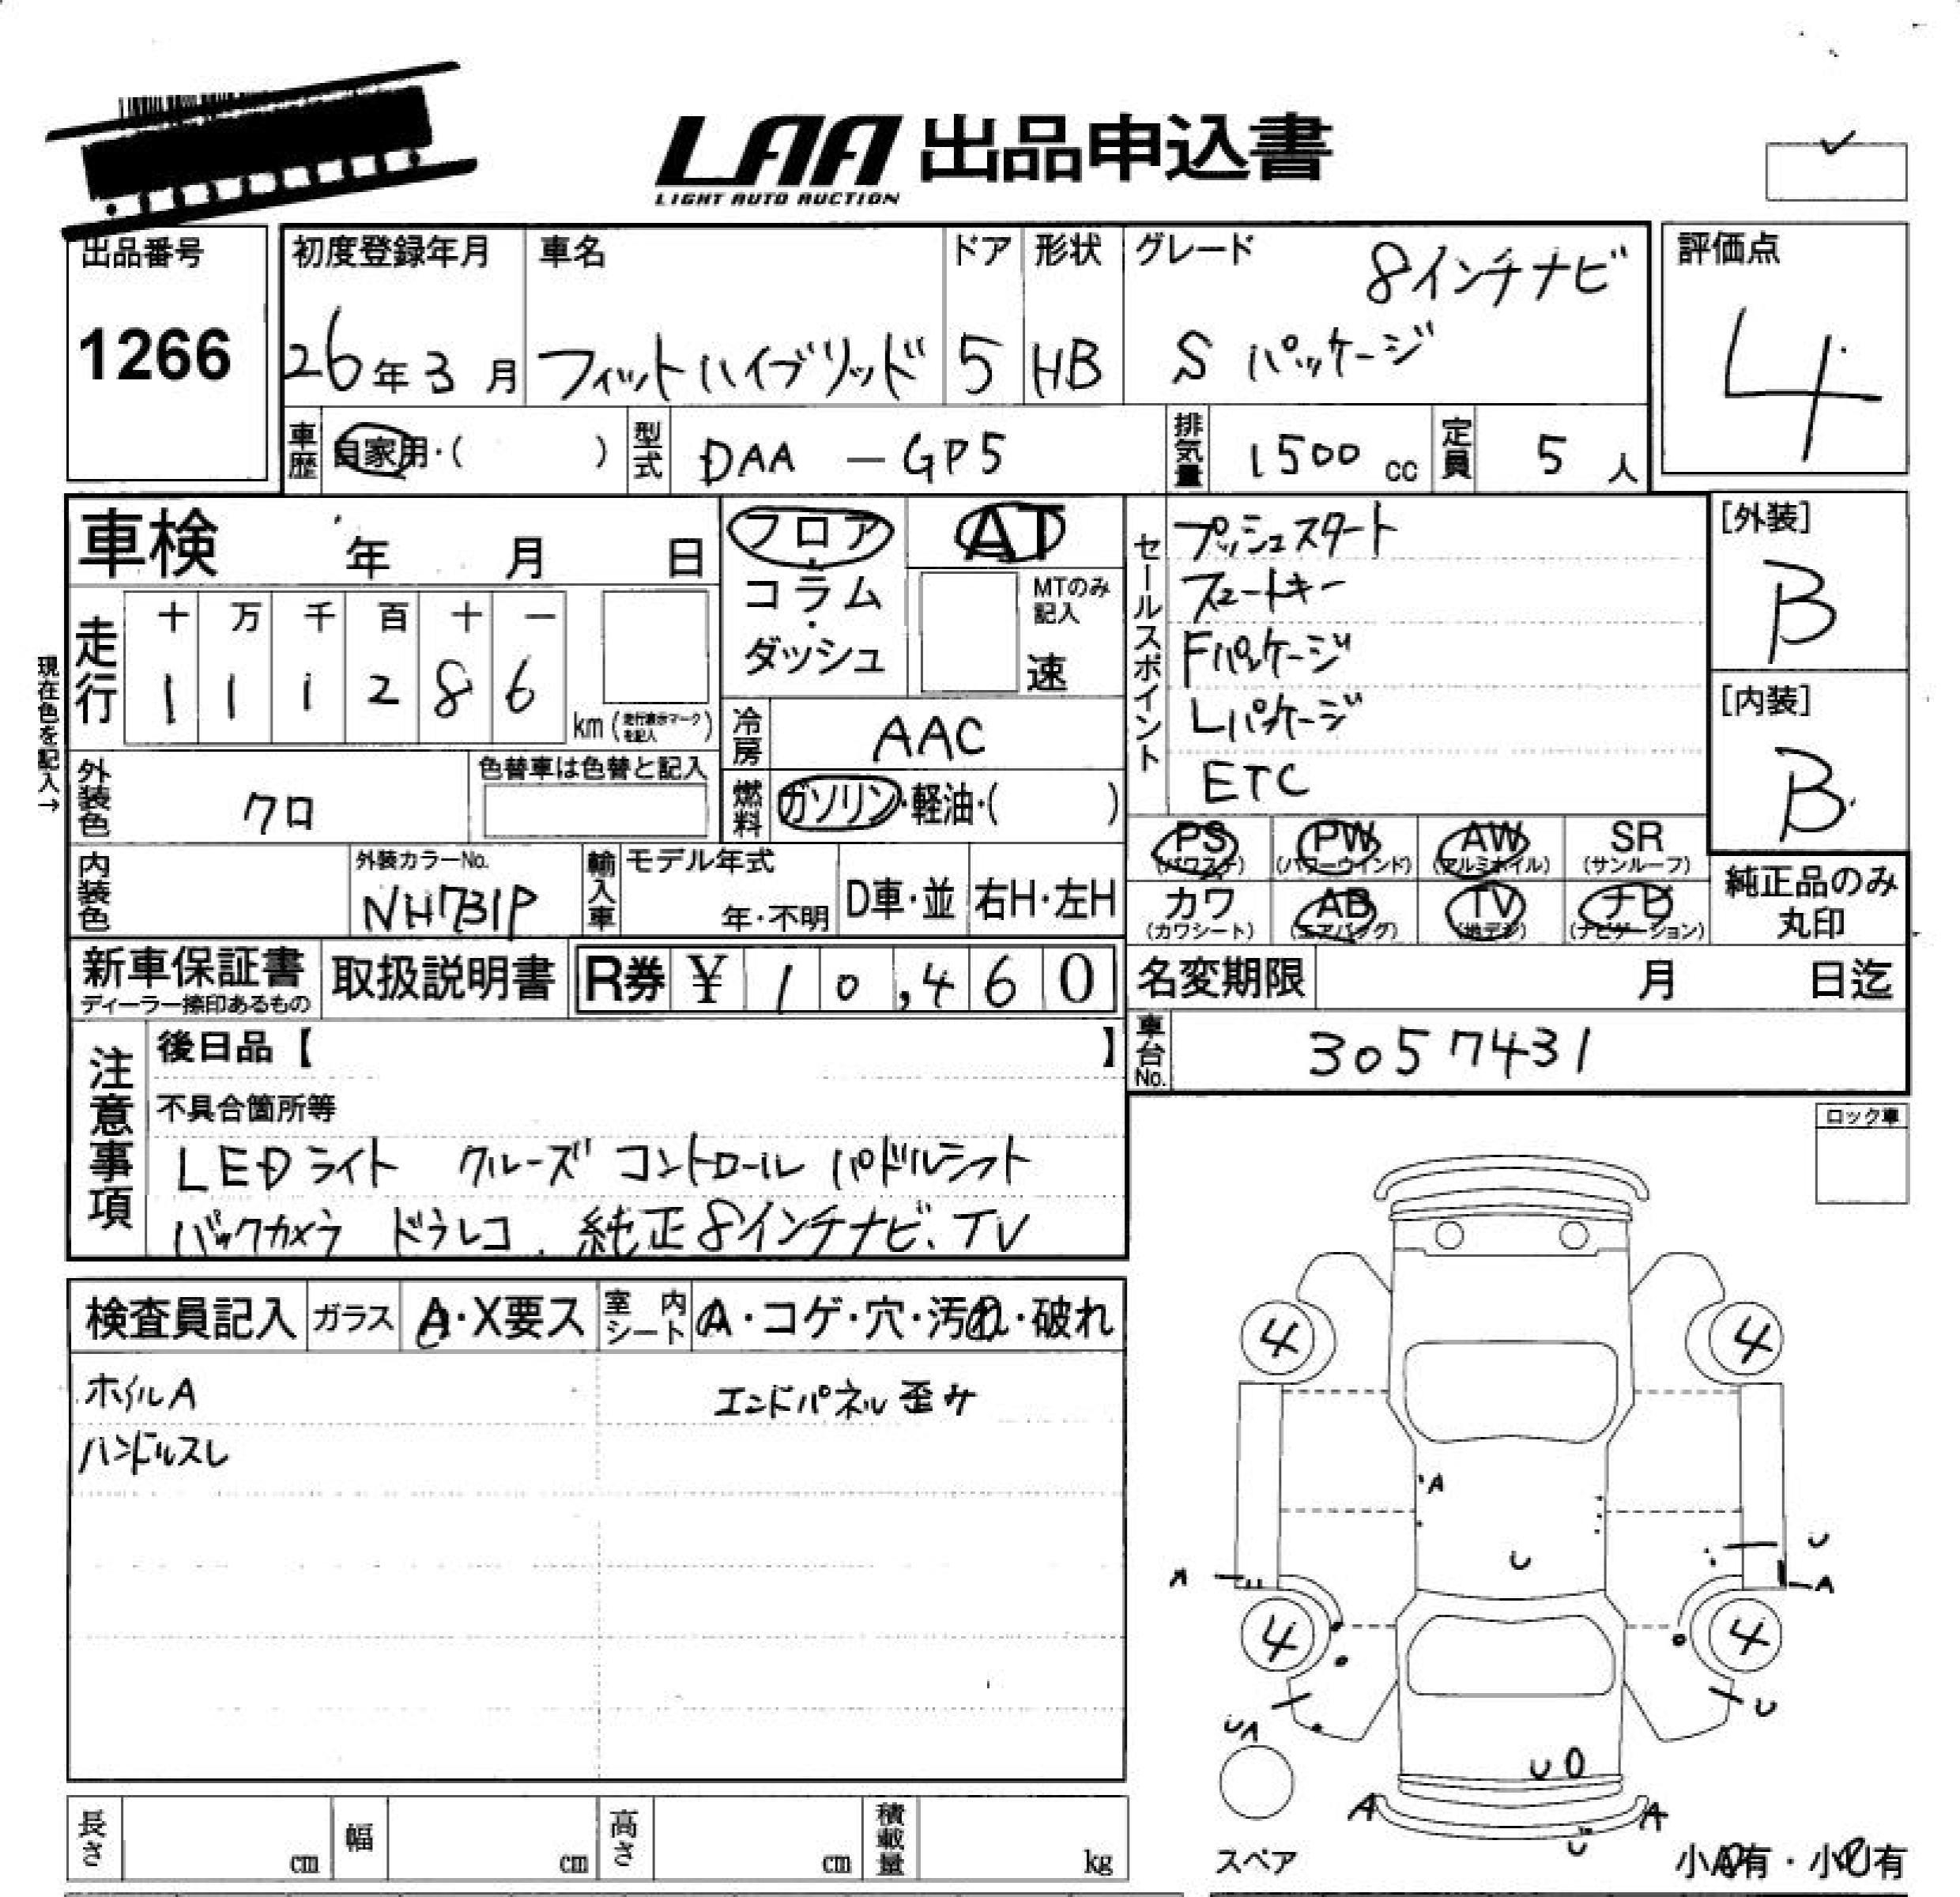 LAA 出品申込書
LIGHT AUTO AUCTION
出品番号
1266
初度登録年月
26年3月
車名
フィットハイブリッド
ドア
5
形状
HB
グレード
8インチナビ
S パッケージ
評価点
4
車歴
自家用・( )
型式
DAA - GP5
排気量
1500 cc
定員
5 人
車検 年 月 日
フロア・コラム・ダッシュ
AT
MTのみ記入
速
セールスポイント
プッシュスタート
スマートキー
Fパッケージ
Lパッケージ
ETC
[外装]
B
[内装]
B
現在色を記入→
走行
十 万 千 百 十 一
1 1 1 2 8 6
km (走行表示マークを記入)
冷房
AAC
外装色
クロ
色替車は色替と記入
燃料
ガソリン・軽油・( )
PS (パワステ)
PW (パワーウインド)
AW (アルミホイル)
SR (サンルーフ)
カワ (カワシート)
AB (エアバッグ)
TV (地デジ)
ナビ (ナビゲーション)
純正品のみ丸印
内装色
外装カラーNo.
NH731P
輸入車
モデル年式
年・不明
D車・並
右H・左H
新車保証書
ディーラー捺印あるもの
取扱説明書
R券 ¥ 10,460
名変期限 月 日迄
車台No.
3057431
注意事項
後日品【 】
不具合箇所等
LEDライト クルーズコントロール パドルシフト
バックカメラ ドラレコ、純正8インチナビ、TV
ロック車
検査員記入
ガラス
A・X要ス
室内シート
A・コゲ・穴・汚れ・破れ
ホイルA
エンドパネル歪み
ハンドルスレ
4
4
A
U
U
A
A
4
4
U
UA
U
A
A
U
スペア
小A有・小U有
長さ cm
幅 cm
高さ cm
積載量 kg